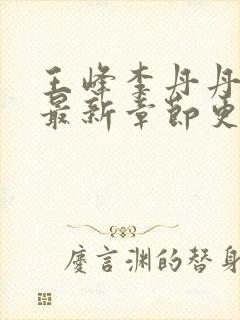 王峰李丹丹
最新章節史
慶言渊的替身